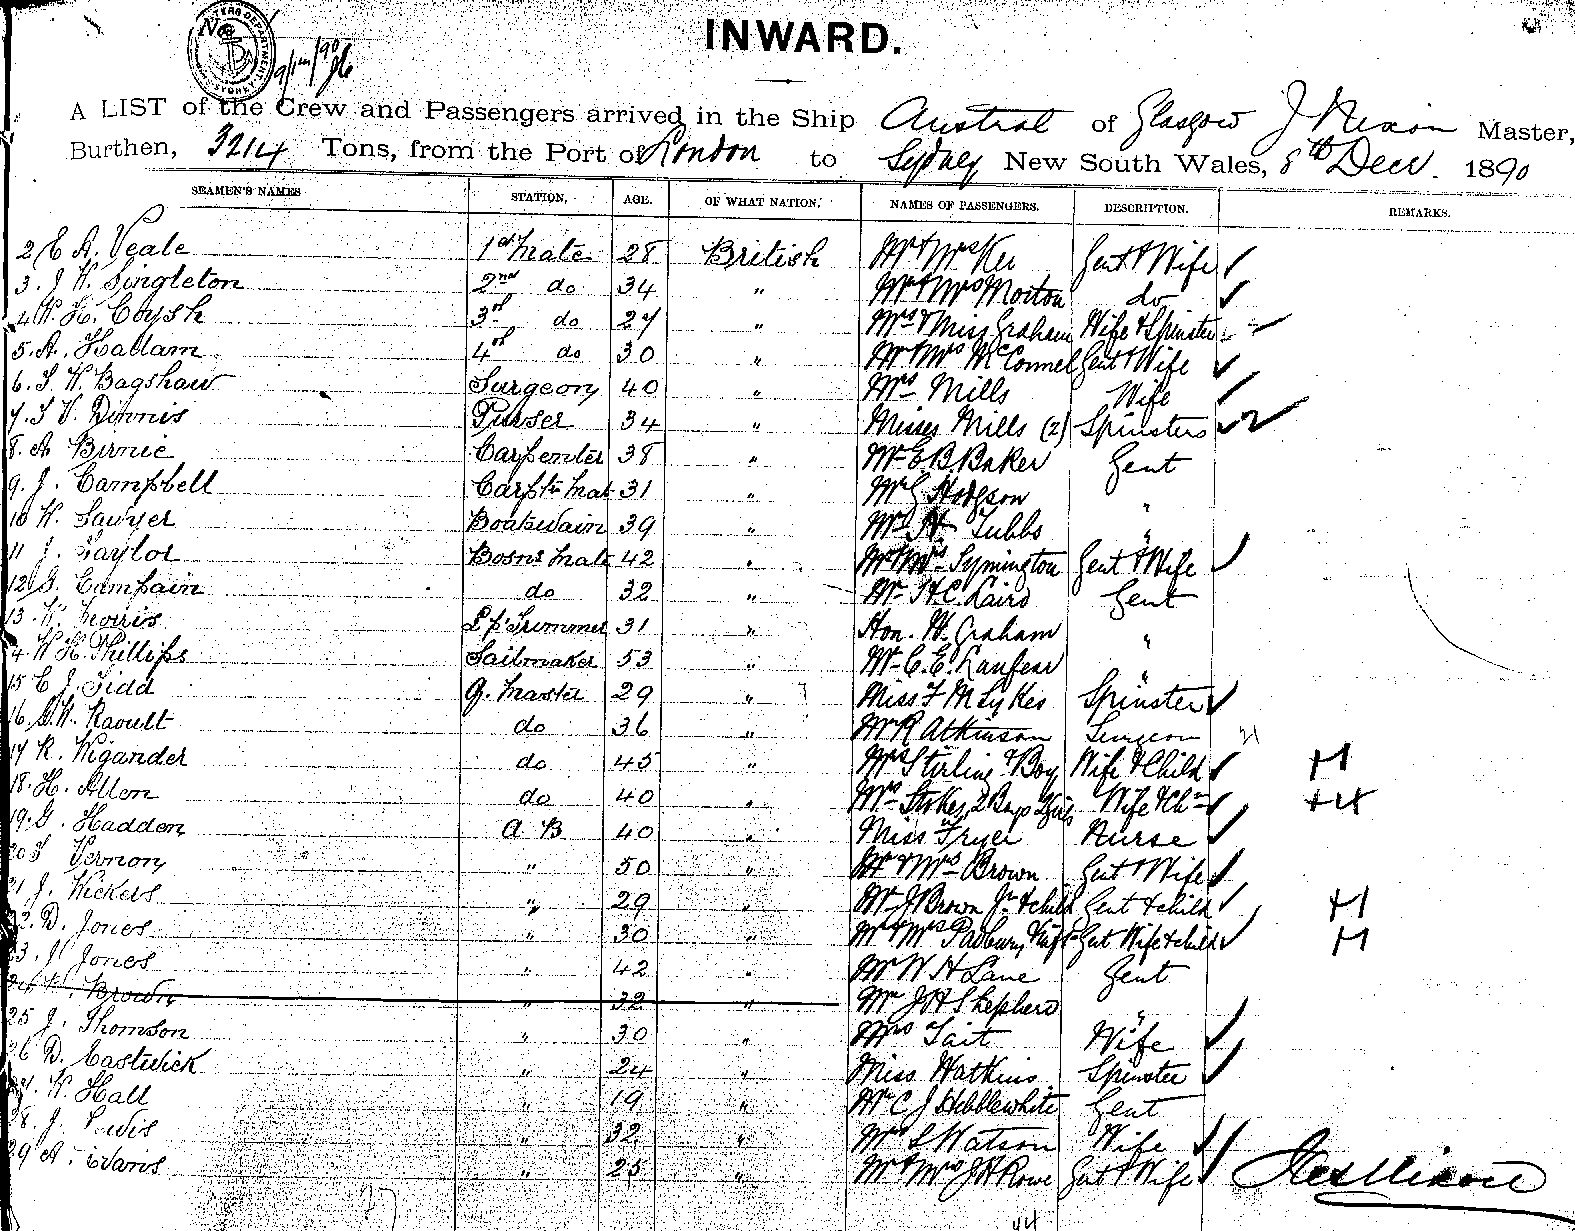 INWARD.
A LIST of the Crew and Passengers arrived in the Ship Austral of Glasgow J Nixon Master,
Burthen, 3214 Tons, from the Port of London to Sydney New South Wales, 8th Decr. 1890
SEAMEN'S NAMES STATION, AGE. OF WHAT NATION. NAMES OF PASSENGERS. DESCRIPTION. REMARKS.
2 E A. Veale 1st Mate 28 British Mr & Mrs Ker Gent & Wife
3. J W. Singleton 2nd do 34 " Mr & Mrs Morton do
4 W. H. Coysh 3rd do 27 " Mrs & Miss Graham Wife & Spinster
5. A. Hallam 4th do 30 " Mr & Mrs McConnel Gent & Wife
6. S. W. Bagshaw Surgeon 40 " Mrs Mills Wife
7. S V. Dinnis Purser 34 " Misses Mills (2) Spinsters
8. A Birnie Carpenter 38 " Mr E B. Baker Gent
9. J. Campbell Carptr Mat 31 " Mr G Hodgson "
10 W. Sawyer Boatswain 39 " Mr H Tubbs "
11 J. Taylor Bosns Mate 42 " Mr & Mrs Symington Gent & Wife
12 G. Campain do 32 " Mr H. C. Laird Gent
13. W. Morris Lp. Trimmer 31 " Hon. W. Graham "
14 W H. Phillips Sailmaker 53 " Mr C. E. Lanfear "
15 C J. Tidd Q. Master 29 " Miss F M Sykes Spinster
16. G. W. Raoult do 36 " Mr R Atkinson Surgeon
17 R. Wigander do 45 " Mrs Stirling & Boy Wife & Child H
18. H. Allen do 40 " Mrs Stokes 2 Boys Wife & Chn
19. G. Hadden A B 40 " Miss Fryer Nurse
20 S Vernon " 50 " Mr & Mrs Brown Gent & Wife
21 J. Wickers " 29 " Mr J Brown Jr & child Gent & child H
22. D. Jones " 30 " Mr & Mrs Padbury & inft Gent Wife & child H
23. J Jones " 42 " Mr W H Lane Gent
24 W. Brown " 32 " Mr J H Shepherd "
25 J. Thomson " 30 " Mrs Tait Wife
26 D. Eastwick " 24 " Miss Watkins Spinster
27. W. Hall " 19 " Mr C J Hebblewhite Gent
28. J. Lewis " 32 " Mrs S Watson Wife
29 A. Evans " 25 " Mr & Mrs J H Rowe Gent & Wife